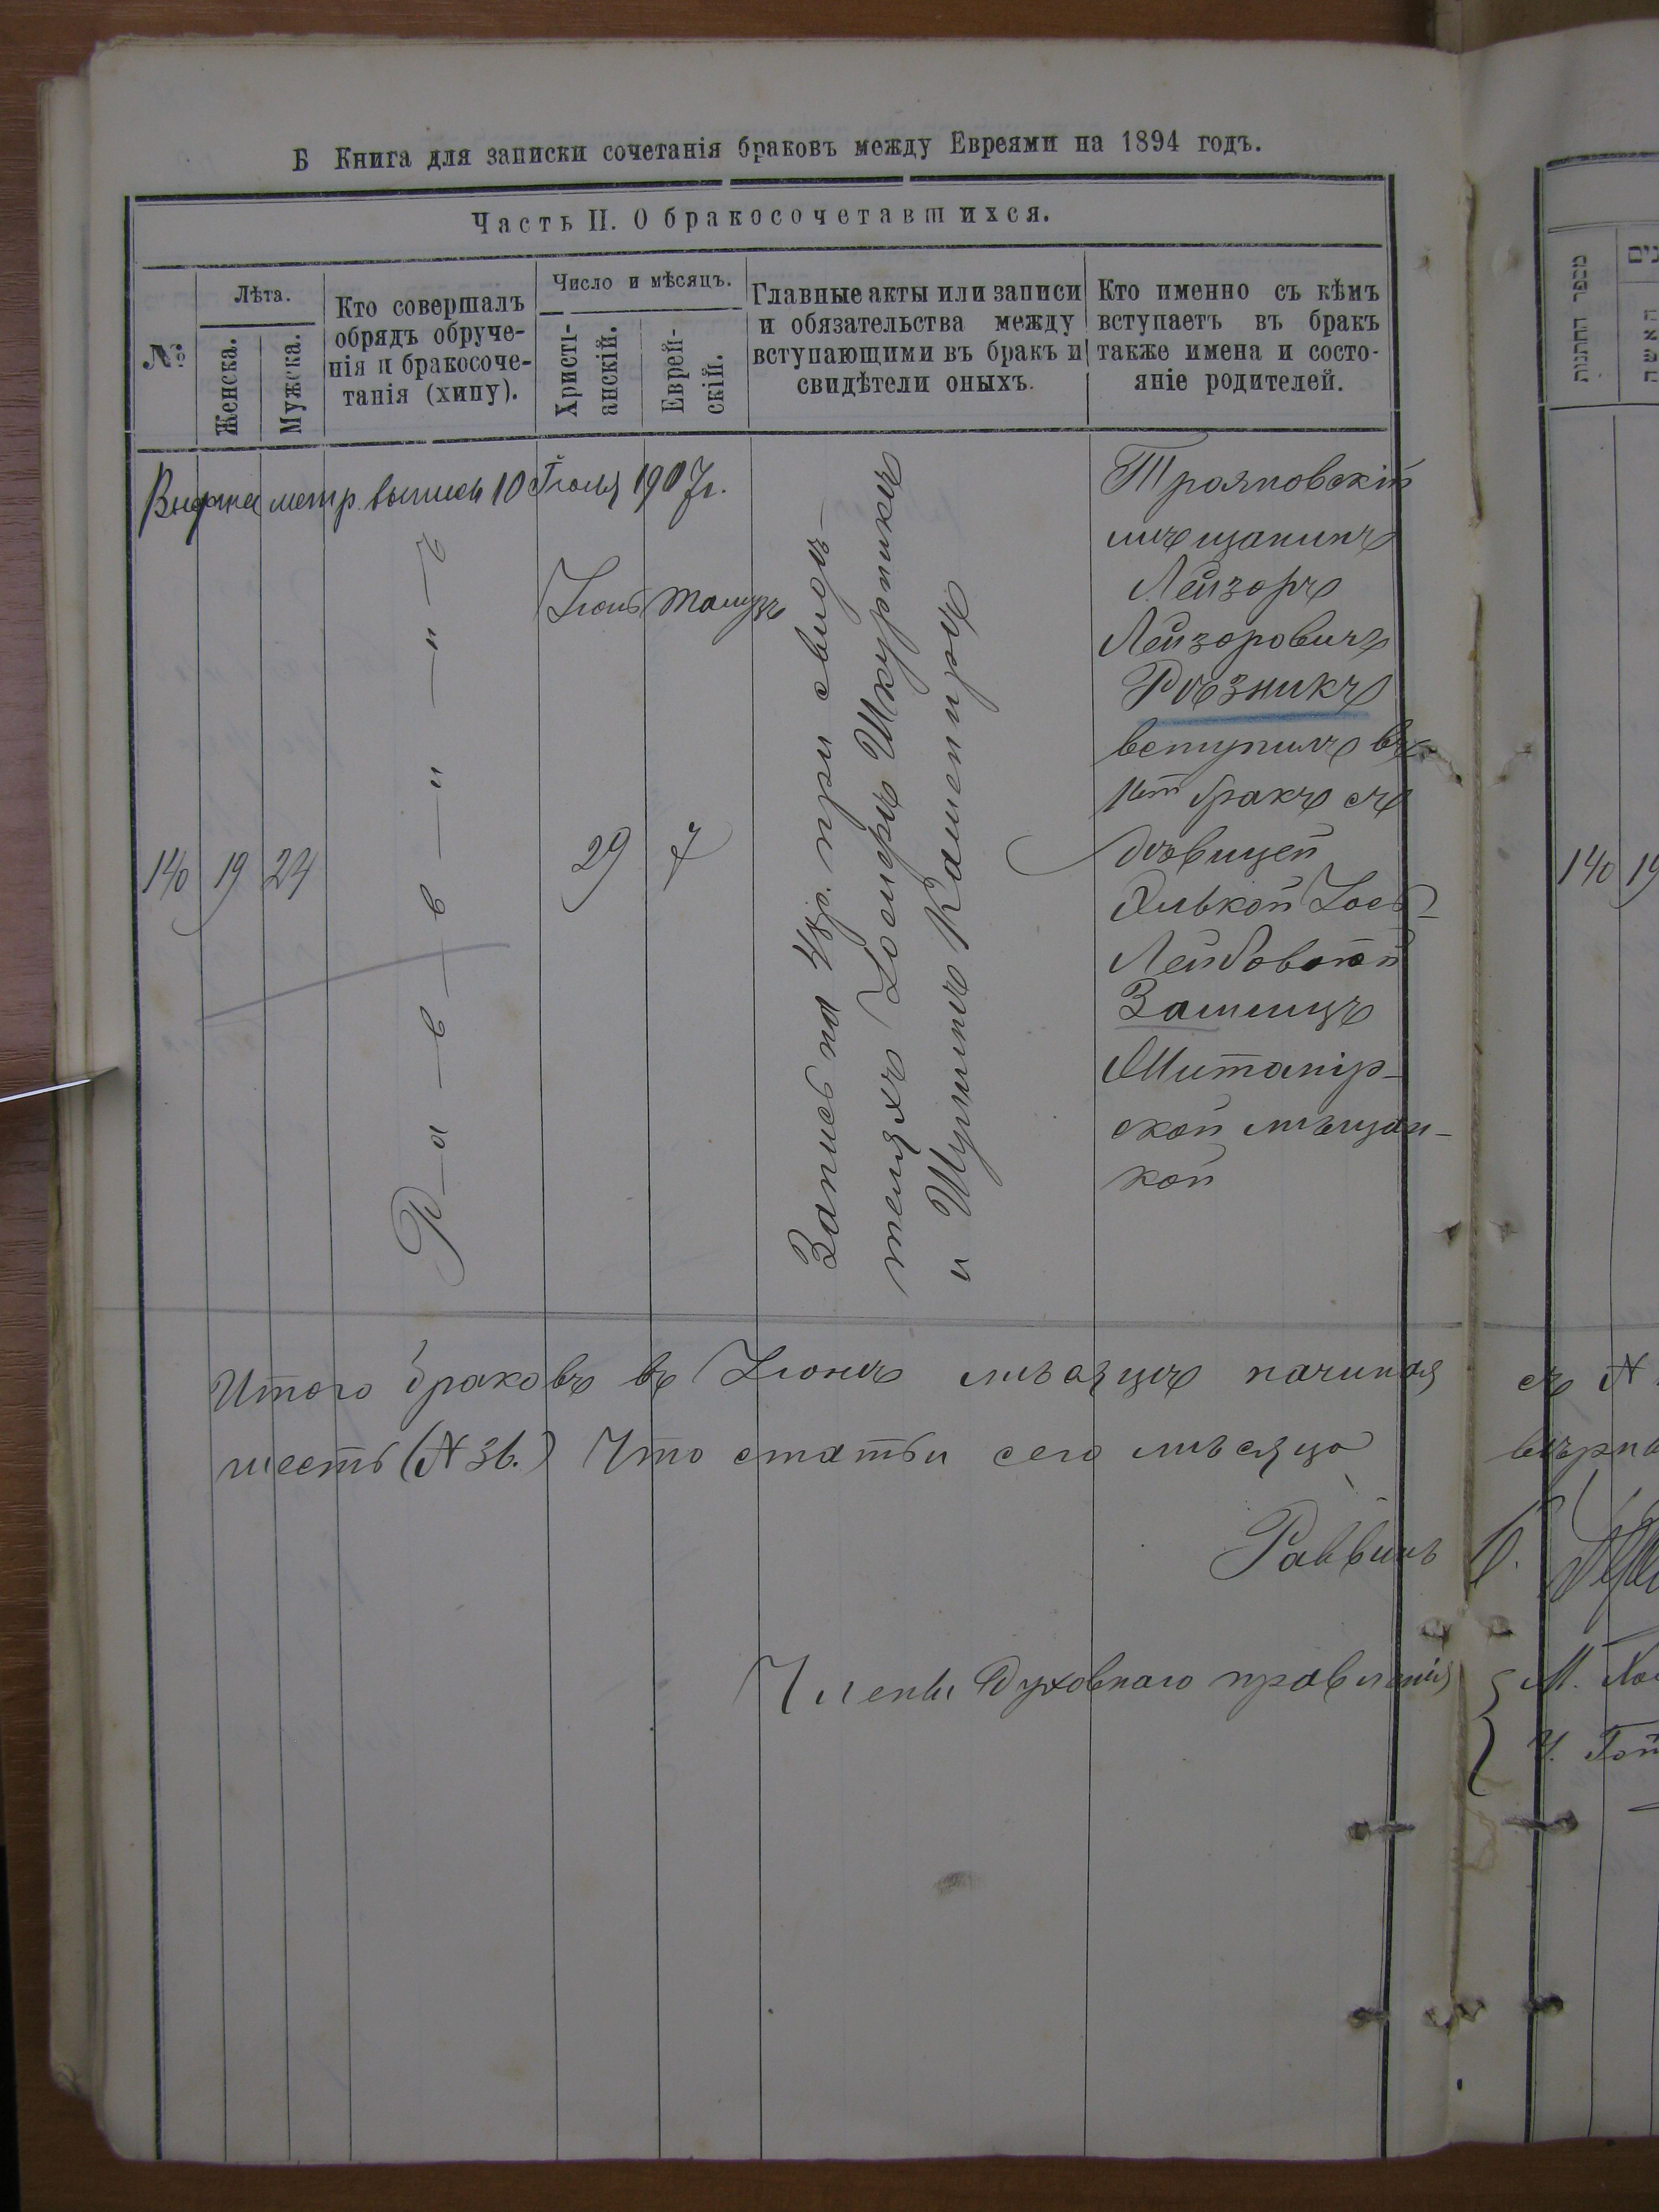 Б Книга для записки сочетанія браковъ между Евреями на 1894 годъ.
Часть II. О бракосочетавшихся.
№
Лѣта.
Женска.
Мужска.
Кто совершалъ
обрядъ обруче-
нія и бракосоче-
танія (хипу).
Число и мѣсяцъ.
Христі-
анскій.
Еврей-
скій.
Главные акты или записи
и обязательства между
вступающими въ бракъ и
свидѣтели оныхъ.
Кто именно съ кѣмъ
вступаетъ въ бракъ
также имена и состо-
яніе родителей.
метр. выпись 10 Іюля 1907 г.
140
19
24
Р-а-в-в-и-н-ъ
Іюнь
29
Тамузъ
7
Запись на 48 р. при свидѣ-
теляхъ Іосифѣ Шкурникѣ
и Шулимѣ Камениръ
Трояновскій
мѣщанинъ
Лейзоръ
Лейзоровичъ
Рѣзникъ
вступилъ въ
1й бракъ съ
дѣвицей
Іось-
Лейбовой
Замищъ
Житомір-
ской мѣщан-
кой
Итого браковъ въ Іюнѣ мѣсяцѣ начиная съ №
шесть (№ 36.) Что статьи сего мѣсяца вѣрны
Раввинъ
Члены Духовнаго правленія
М.
מספר החתונות
האשה
140
19